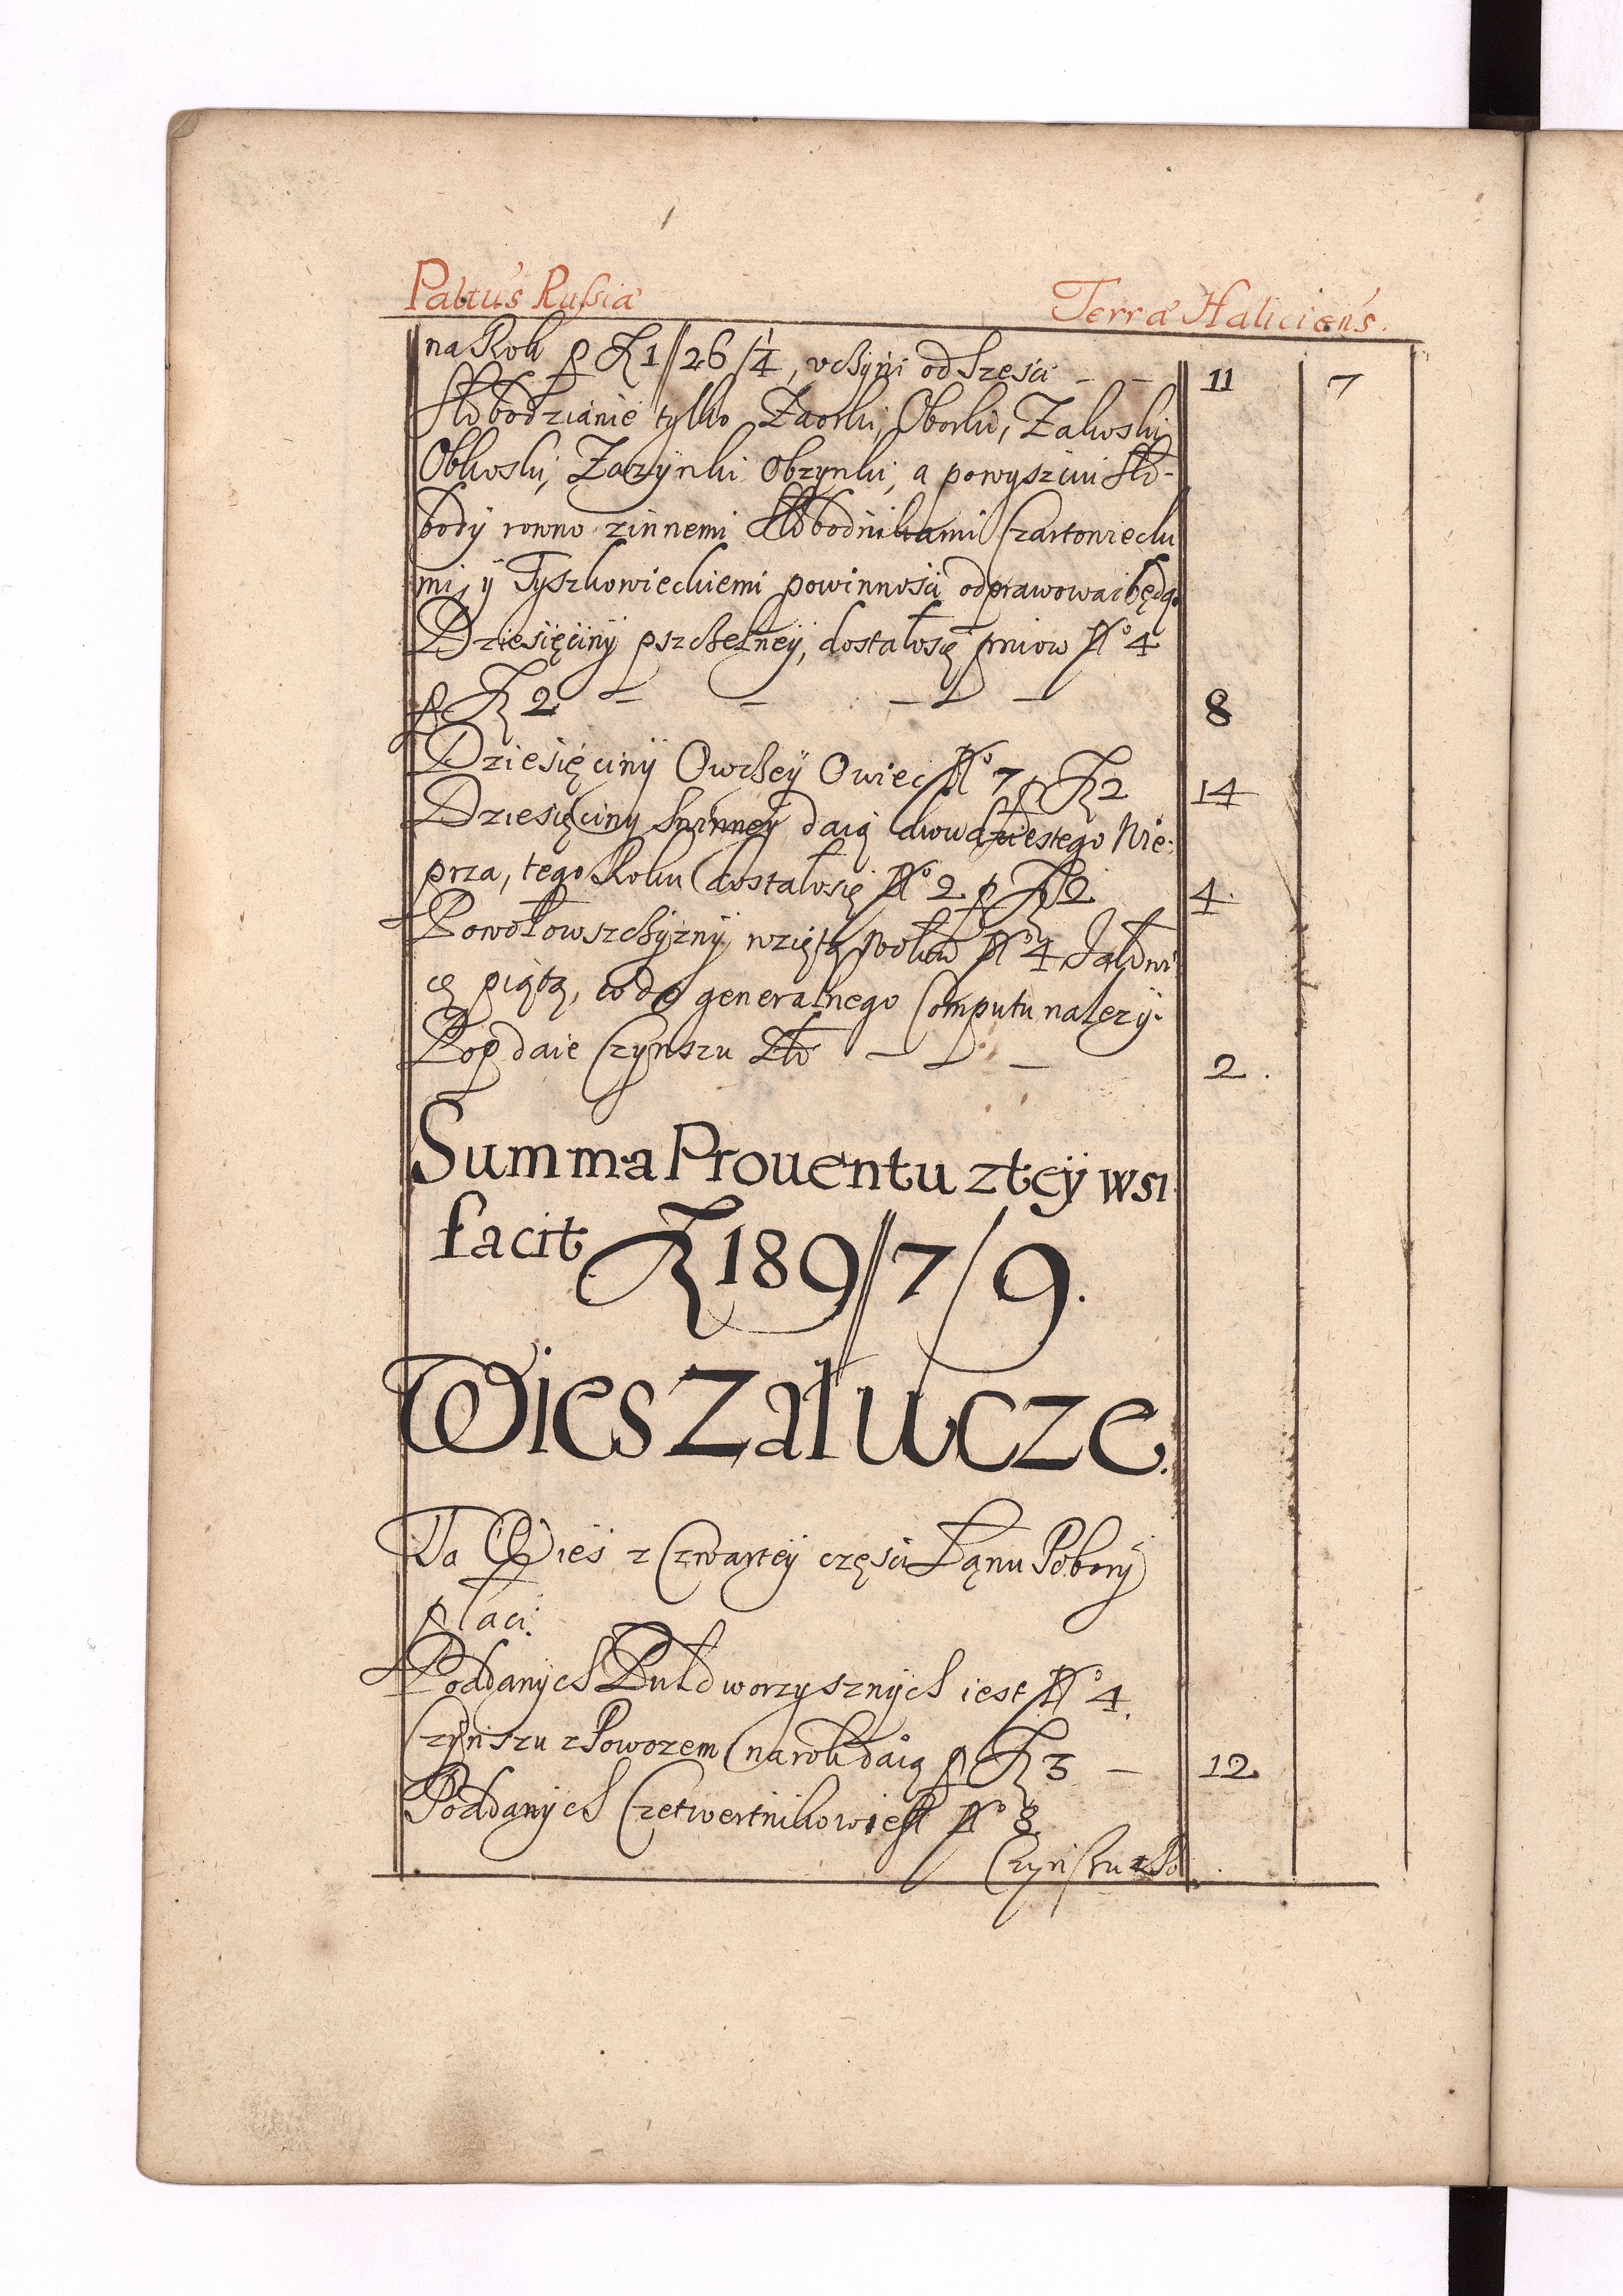 Paltus Russiæ Terræ Haliciens.
na Rok p Fl 1//26/¼, vczyni od Szesci 11 7
Słobodzianie tylko Zaorki, Oborki, Zakoski
Obkoski, Zazÿnki Obzynki, a powyszciu Sło-
bodÿ rowno zinnemi Słobodnikami Czartowiecki
mi, ÿ Tyszkowieckiemi powinnosci odprawowac będą.
Dziesięcinÿ pszczelneÿ, dostałosię pniow No 4
p Fl 2 8
Dziesięcinÿ Owczeÿ Owiec No 7 p Fl 2 14
Dziesięciny Swinneÿ daią dwudziestego Wie:
prza, tego Roku dostałosię No 2 p Fl 2 4
Powołowszczÿznÿ wzięto Wołow No 4 Jałowi
cę piątą, co do generalnego Computu nalezÿ.
Pop daie Czynszu Zło 2.
Summa Prouentu zteÿ wsi
facit Fl 189//7/9.
Wies Załucze.
Ta Wies z Czwarteÿ częsci Łanu Poborÿ
płaci.
PoddanÿcH Pułdworzysznÿch iest No 4.
Czÿnszu z Powozem na rok daią p Fl 3 12
Poddanÿch Czetwertnikow iest No 8
Czyńszu z Po